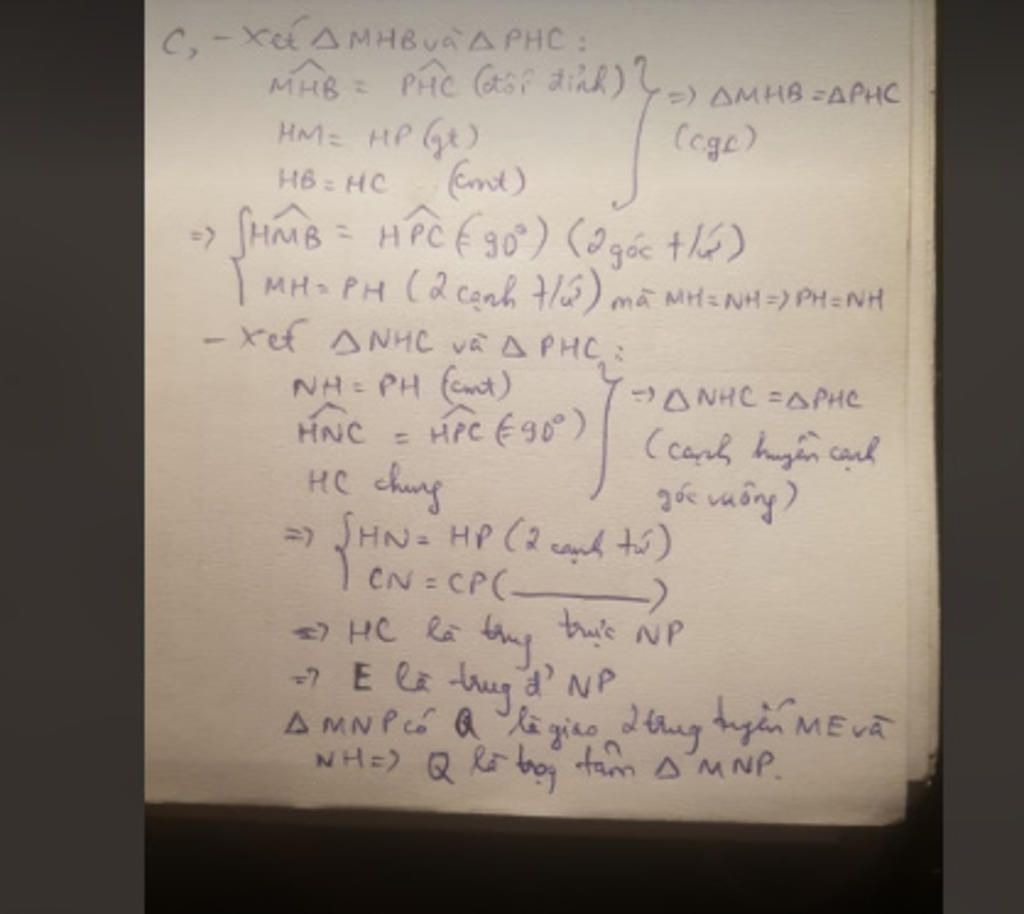 C, - Xét △MHB và △PHC :
MHB = PHC (đối đỉnh)
=> △MHB = △PHC
HM = HP (gt)
(c.g.c)
HB = HC (cmt)
=> HMB = HPC (=90°) (2 góc t/ứ)
MH = PH (2 cạnh t/ứ) mà MH = NH => PH = NH
- Xét △NHC và △PHC :
NH = PH (cmt)
=> △NHC = △PHC
HNC = HPC (=90°)
(cạnh huyền cạnh
HC chung
góc vuông)
=> HN = HP (2 cạnh tứ)
CN = CP (________)
=> HC là trung trực NP
=> E là trung đ' NP
△MNP có Q là giao 2 trung tuyến ME và
NH => Q là trọng tâm △MNP.